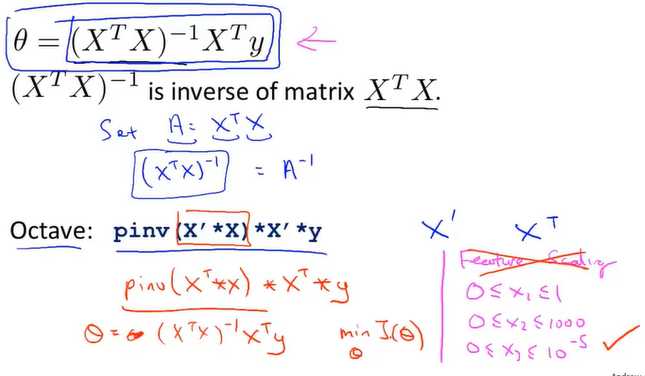 θ = (XᵀX)⁻¹Xᵀy ←
(XᵀX)⁻¹ is inverse of matrix XᵀX.
Set A = XᵀX
(XᵀX)⁻¹ = A⁻¹
Octave: pinv(X'*X)*X'*y
X' Xᵀ
Feature Scaling
pinv(Xᵀ*X)*Xᵀ*y
0 ≤ x₁ ≤ 1
θ = (XᵀX)⁻¹Xᵀy min J(θ)
θ
0 ≤ x₂ ≤ 1000
0 ≤ x₃ ≤ 10⁻⁵ ✓
Andrew